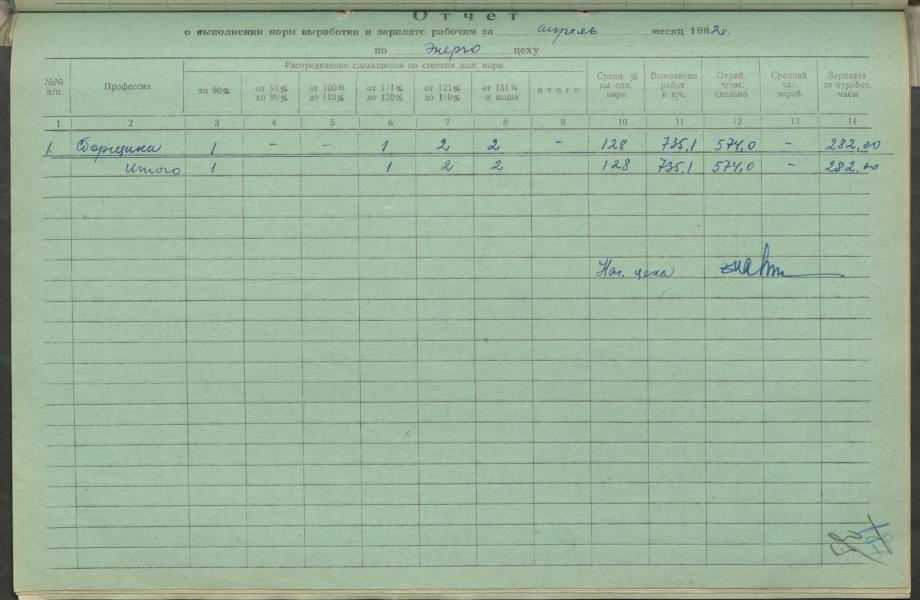 Отчет
о выполнении норм выработки и зарплате рабочим за апрель месяц 1962г.
по Энерго цеху
№№ п/п Профессия Распределение сдельщиков по степени вып. норм Средн. % вып. норм Выполнено работ в н/ч. Отраб. ч/час. сдельно Средний час. зараб. Зарплата за отработ. часы
до 90% от 91% до 99% от 100% до 110% от 111% до 120% от 121% до 150% от 151% и выше итого
1 2 3 4 5 6 7 8 9 10 11 12 13 14
1. Сборщики 1 - - 1 2 2 - 128 735,1 574,0 - 282,00
Итого 1 1 2 2 128 735,1 574,0 - 282,00
Нач. цеха